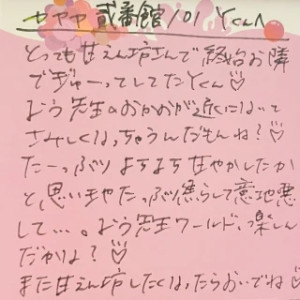 カヤヤ 弐番館/01 Yくんへ
とっても甘えん坊さんで終始お隣
でぎゅーってしてたYくん♡
よう先生のおかおが近くになって
さみしくなっちゃうんだもんね？♡
たーっぷりよちよち甘やかしたか
と思いきやたっぷり焦らして意地悪
して…。よう先生ワールド、楽しん
だかな？♡
また甘えん坊したくなったらおいでね♡